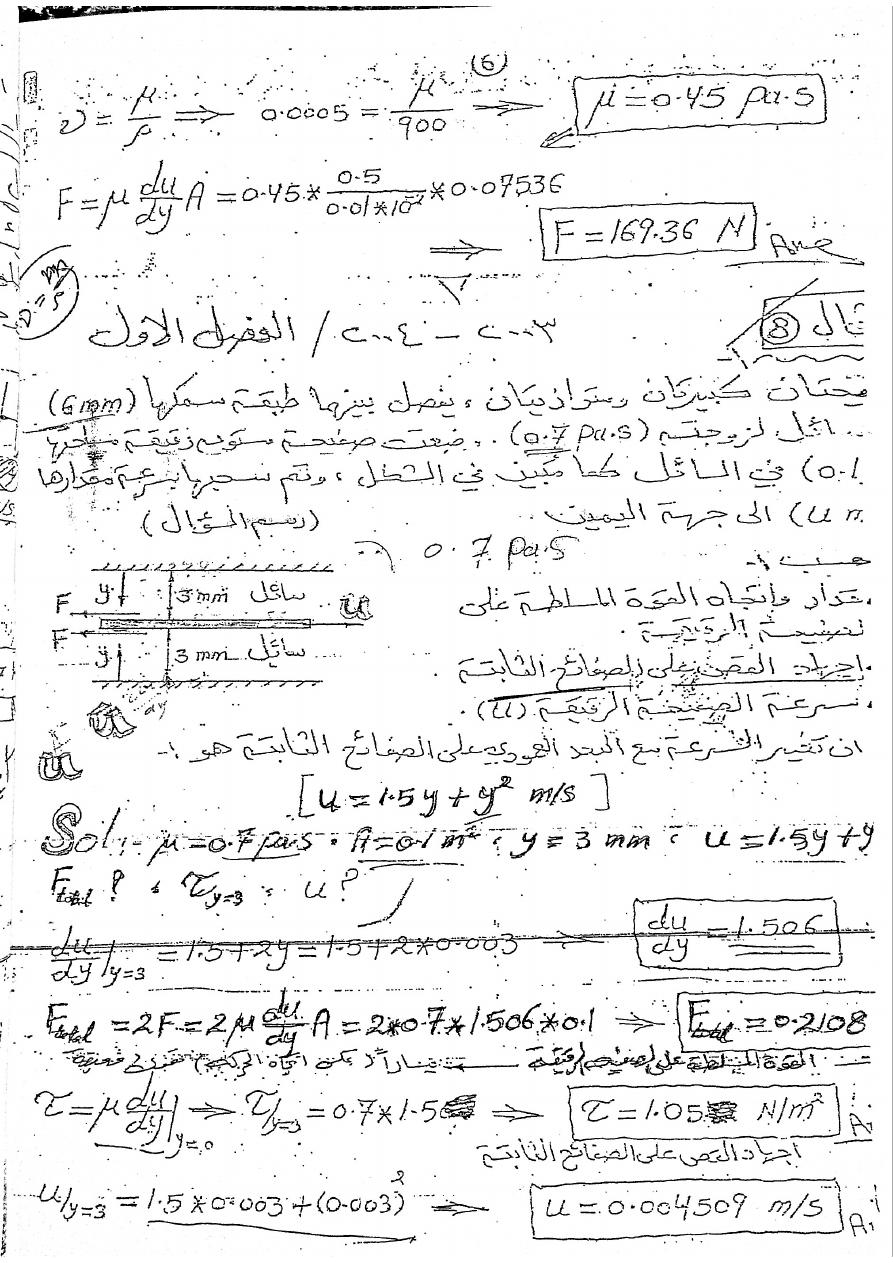 (6)
ν = μ/ρ ⇒ 0.0005 = μ/900 ⇒ μ = 0.45 Pa.s
F = μ du/dy A = 0.45 * 0.5/(0.01*10⁻²) * 0.07536
⇒ F = 169.36 N Ans
ثال (8) ٢٠٠٣ - ٢٠٠٤ / الفصل الاول
يحتان كبيرتان ومتوازيتان ، يفصل بينهما طبقة سمكها (6mm)
ائل لزوجته (0.7 Pa.s) . وضعت صفيحة مستوية رقيقة مساحتها
0.1) في السائل كما مبين في الشكل ، وتم سحبها بسرعة مقدارها
(U m الى جهة اليمين . (رسم السؤال)
0.7 Pa.s
حسب :-
مقدار واتجاه القوة المسلطة على
لصفيحة الرقيقة .
اجهاد القص على الصفائح الثابتة .
سرعة الصفيحة الرقيقة (U) .
y 3mm سائل
F u
F
y 3mm سائل
dy
u
u
ان تغير السرعة مع البعد العمودي على الصفائح الثابتة هو :-
[u = 1.5y + y² m/s]
Sol:- μ = 0.7 Pa.s , A = 0.1 m² , y = 3 mm , u = 1.5y + y
F total ? , τ y=3 , u ?
du/dy|y=3 = 1.5 + 2y = 1.5 + 2*0.003 ⇒ du/dy = 1.506
F total = 2F = 2μ du/dy A = 2*0.7*1.506*0.1 ⇒ F total = 0.2108
القوة المسلطة على الصفيحة الرقيقة
τ = μ du/dy|y=0 ⇒ τ|y=3 = 0.7*1.5 ⇒ τ = 1.05 N/m² A
اجهاد القص على الصفائح الثابتة
u|y=3 = 1.5*0.003 + (0.003)² ⇒ u = 0.004509 m/s A